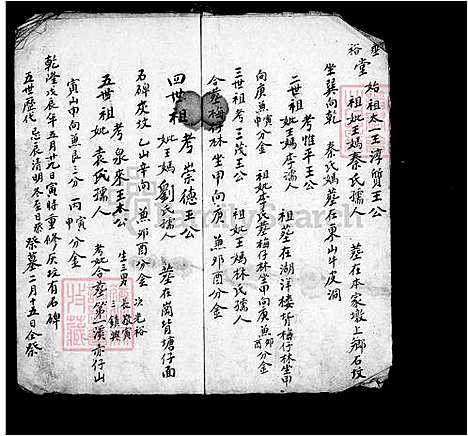 裕堂
始祖太一王淳質王公
祖妣王媽秦氏孺人 墓在本家墩上鄉石坟
坐巽向乾 秦氏媽墓在東山牛皮洞
二世祖考惟平王公
妣王媽李孺人 祖墓在湖洋樓背梅仔林坐甲
向庚兼申寅分金 祖妣李氏墓梅仔林坐甲向庚兼卯酉分金
三世祖考三茂王公 祖妣王媽林氏孺人
合墓梅仔林坐甲向庚 兼卯酉分金
四世祖考崇德王公
妣王媽劉孺人 墓在蔄背塘仔面
石碑灰坟乙山辛向 兼卯酉分金
五世祖考泉來王公 生三男 長毅寅 次光裕 三鎮興
妣袁氏孺人 考妣合墓第一溪赤仔山
寅山甲向兼艮三分 丙寅 丙申 分金
乾隆戊辰年五月廿九日寅時重修灰坟有石碑
五世歷代 忌辰清明冬至日祭 祭墓二月十五日仝祭
FamilySearch